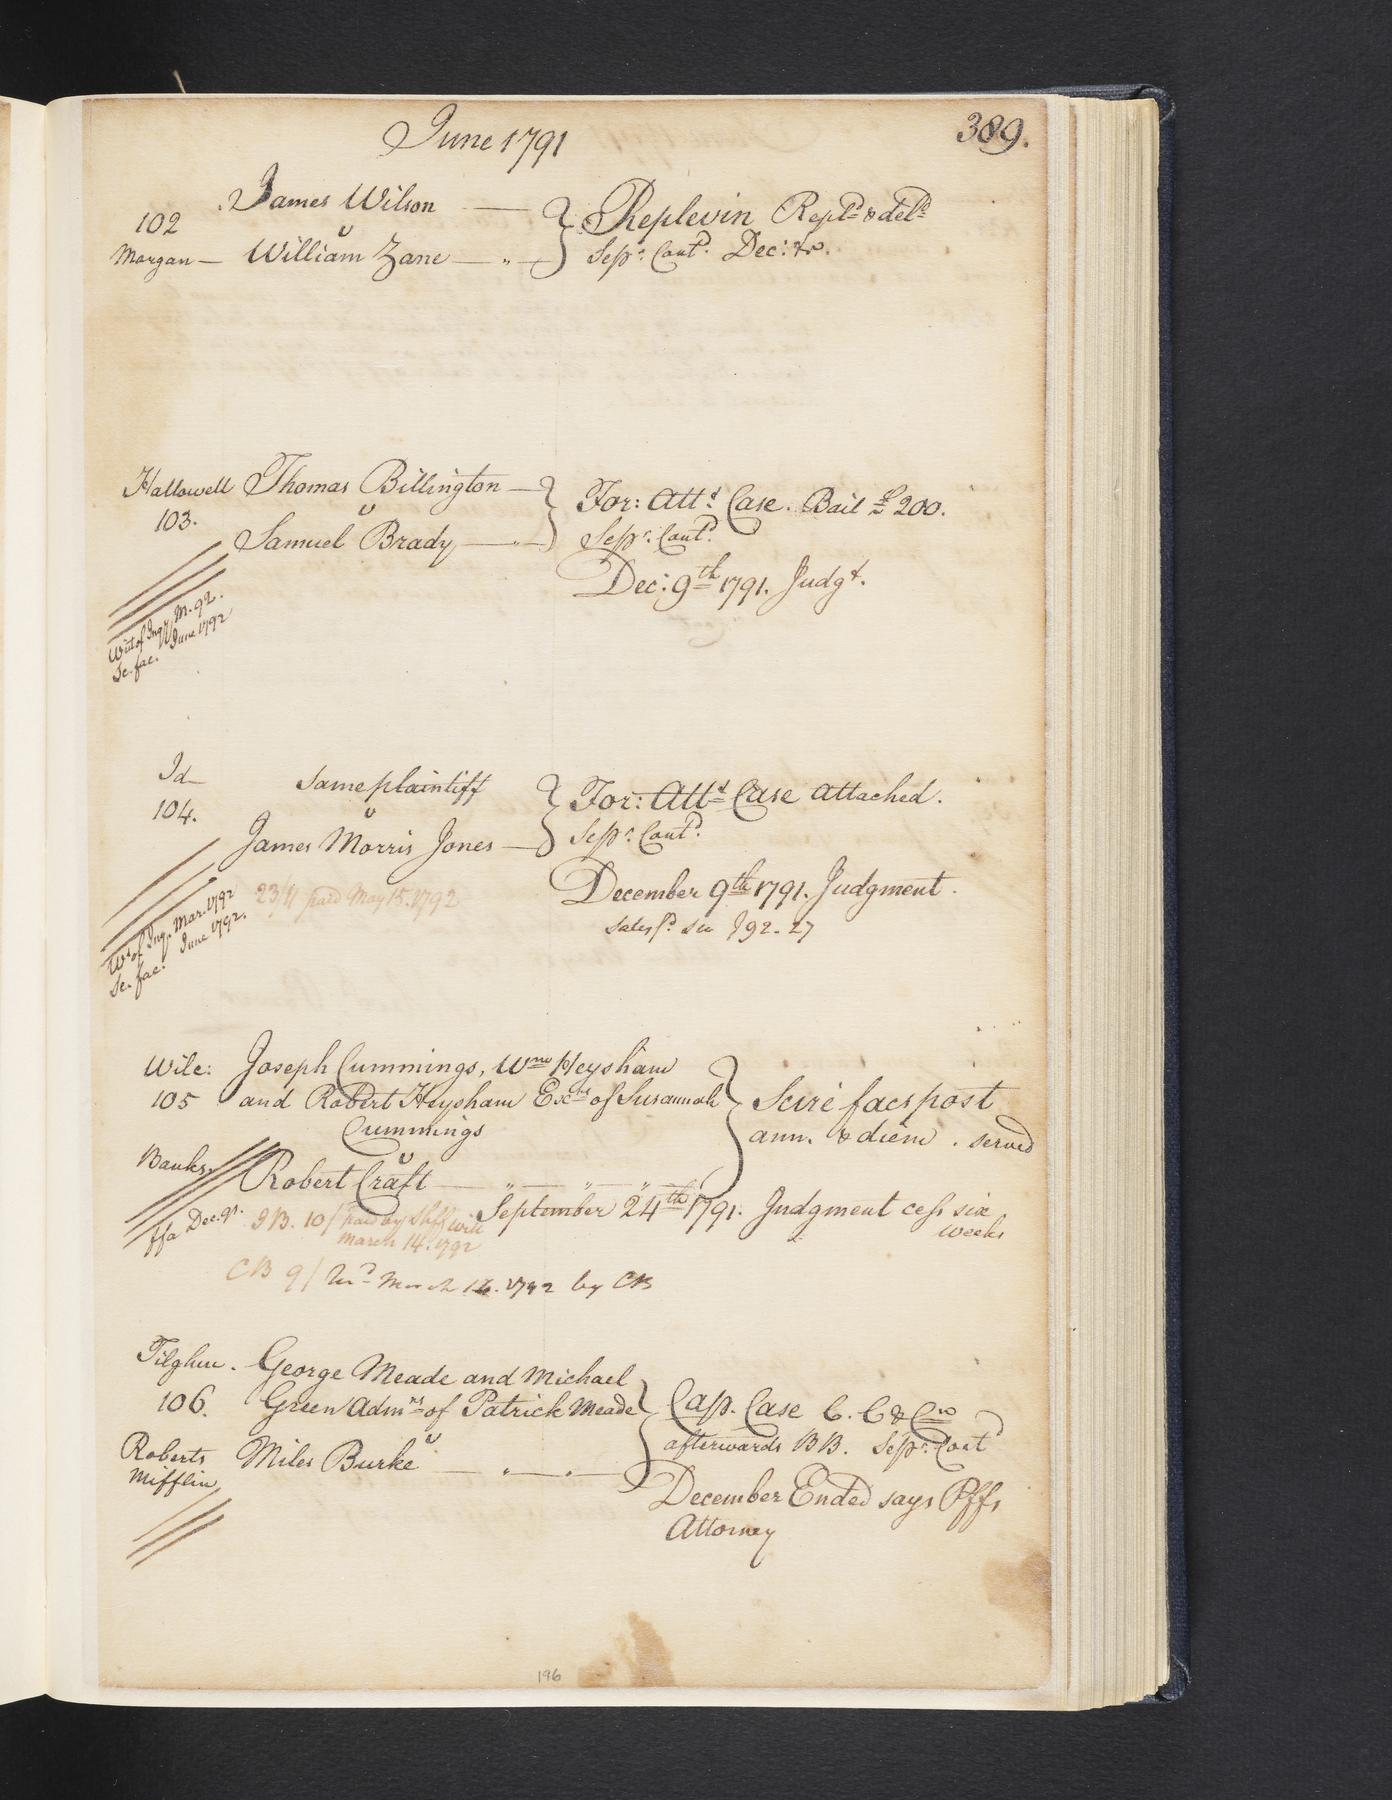 June 1791
389.
James Wilson
102
v
Morgan — William Zane — " —
Replevin Repld. & deld.
Sepr. Contd. Dec: &c.
Hallowell Thomas Billington —
103.
v
Samuel Brady — " —
For: Attt. Case. Bail £200.
Sepr. Contd.
Dec: 9th 1791. Judgt.
Writ of Inqy. M. 92.
Sc. fac. June 1792
Id —
same plaintiff
104.
v
James Morris Jones —
For: Attt. Case attached.
Sepr. Contd.
December 9th 1791. Judgment.
paid May 15. 1792
Wt. of Inq. Mar. 1792
Sc. fac. June 1792.
Wilc: Joseph Cummings, Wm. Heysham
105 and Robert Heysham Exrs of Susannah
Cummings
v
Banks Robert Craft — " — " — " —
Scire facs post
ann. & diem. served
September 24th 1791. Judgment cess six
weeks
ffa Dec. 91.
9B. 10/ paid by Shff with
March 14. 1792
CB 9/ March 14. 1792 by CB
Tilghm. George Meade and Michael
106. Green Admrs of Patrick Meade
v
Roberts Miles Burke — " — " —
Mifflin
Cap. Case C. C & Co
afterwards BB. Sepr. Contd
December Ended says Pffs
Attorney
196